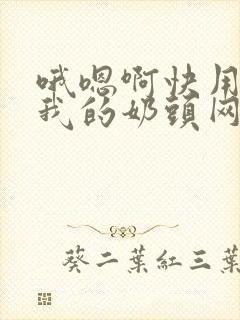 哦嗯啊快用
我的奶頭网
葵二葉紅三葉